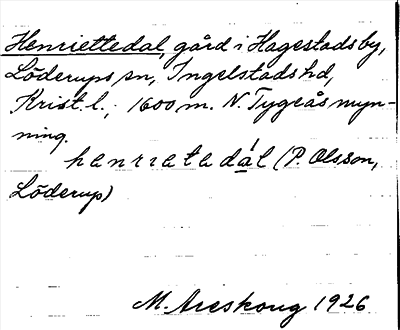 Henriettedal, gård i Hagestads by,
Löderups sn, Ingelstads hd,
Krist. l.; 1600 m. N. Tygeås myn-
ning.
henrietedál (P. Olsson,
Löderup)
M. Areskoug 1926